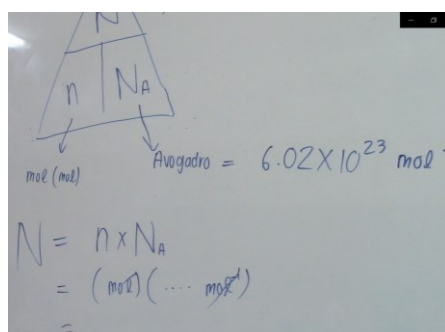 N
n N_A
mol (mol) Avogadro = 6.02 X 10^23 mol
N = n x N_A
= (mol) ( .... mol^-1)
=